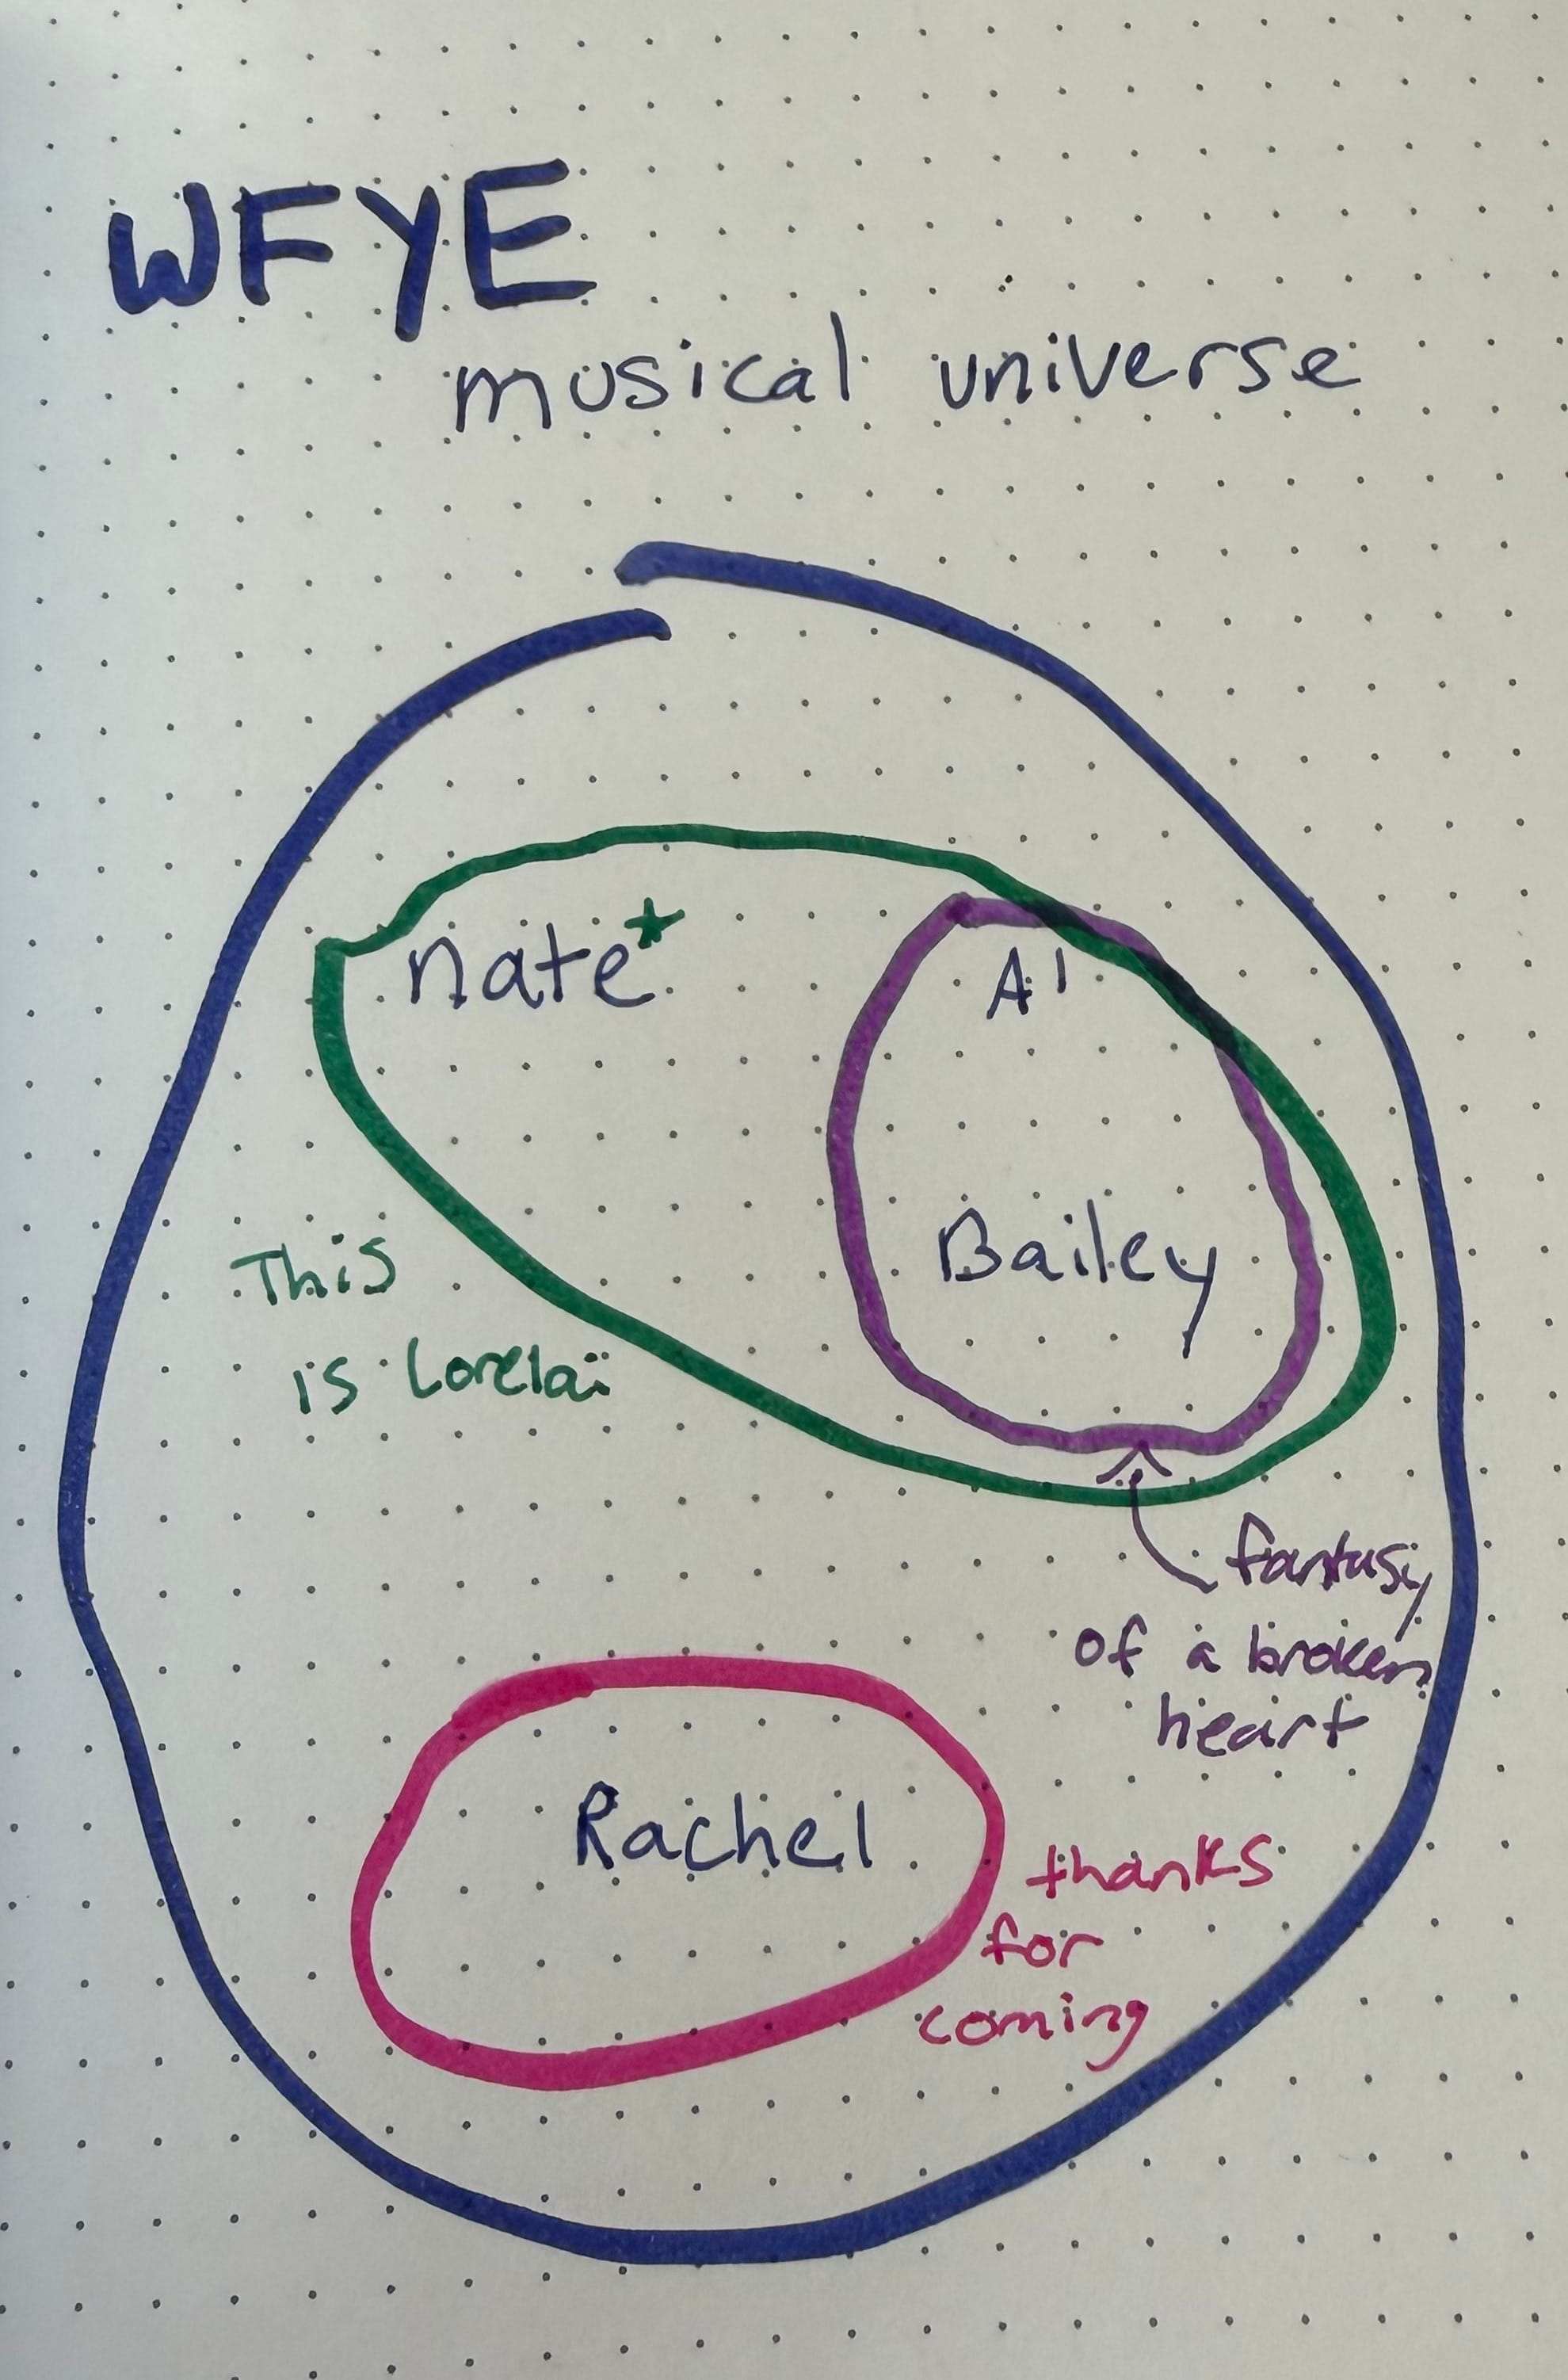 WFYE
musical universe
nate*
Al
Bailey
This
is Lorelai
fantasy
of a broken
heart
Rachel
thanks
for
coming